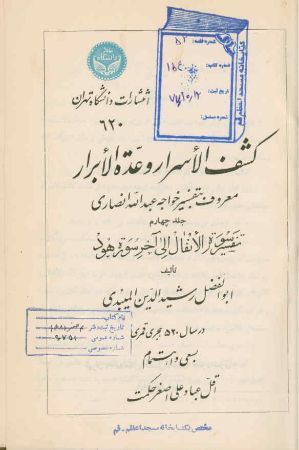 انتشارات دانشگاه تهران
۶۲۰
کتابخانه مسجد اعظم قم
شماره قفسه:
شماره کتاب:
تاریخ ثبت:
شماره مسلسل:
کشف الأسرار وعدّة الأبرار
معروف بتفسیر خواجه عبدالله انصاری
جلد چهارم
تفسیر سورة الأنفال الی آخر سورة هود
تألیف
ابوالفضل رشیدالدین المیبدی
در سال ۵۲۰ هجری قمری
بسعی و اهتمام
اقل عباد علی اصغر حکمت
نام کتاب
تاریخ ثبت دفتر
شماره عمومی
شماره خصوصی
مختص کتابخانه مسجد اعظم - قم